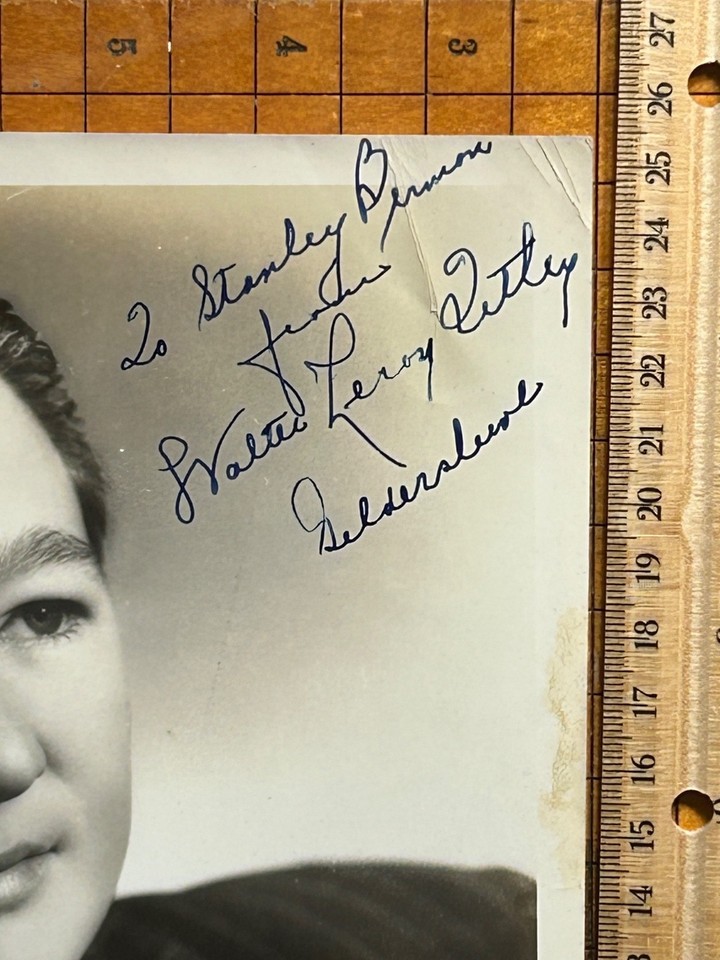 5 4 3
To Stanley Berman
from
Walter Leroy Tetley
Gildersleeve
27
26
25
24
23
22
21
20
19
18
17
16
15
14